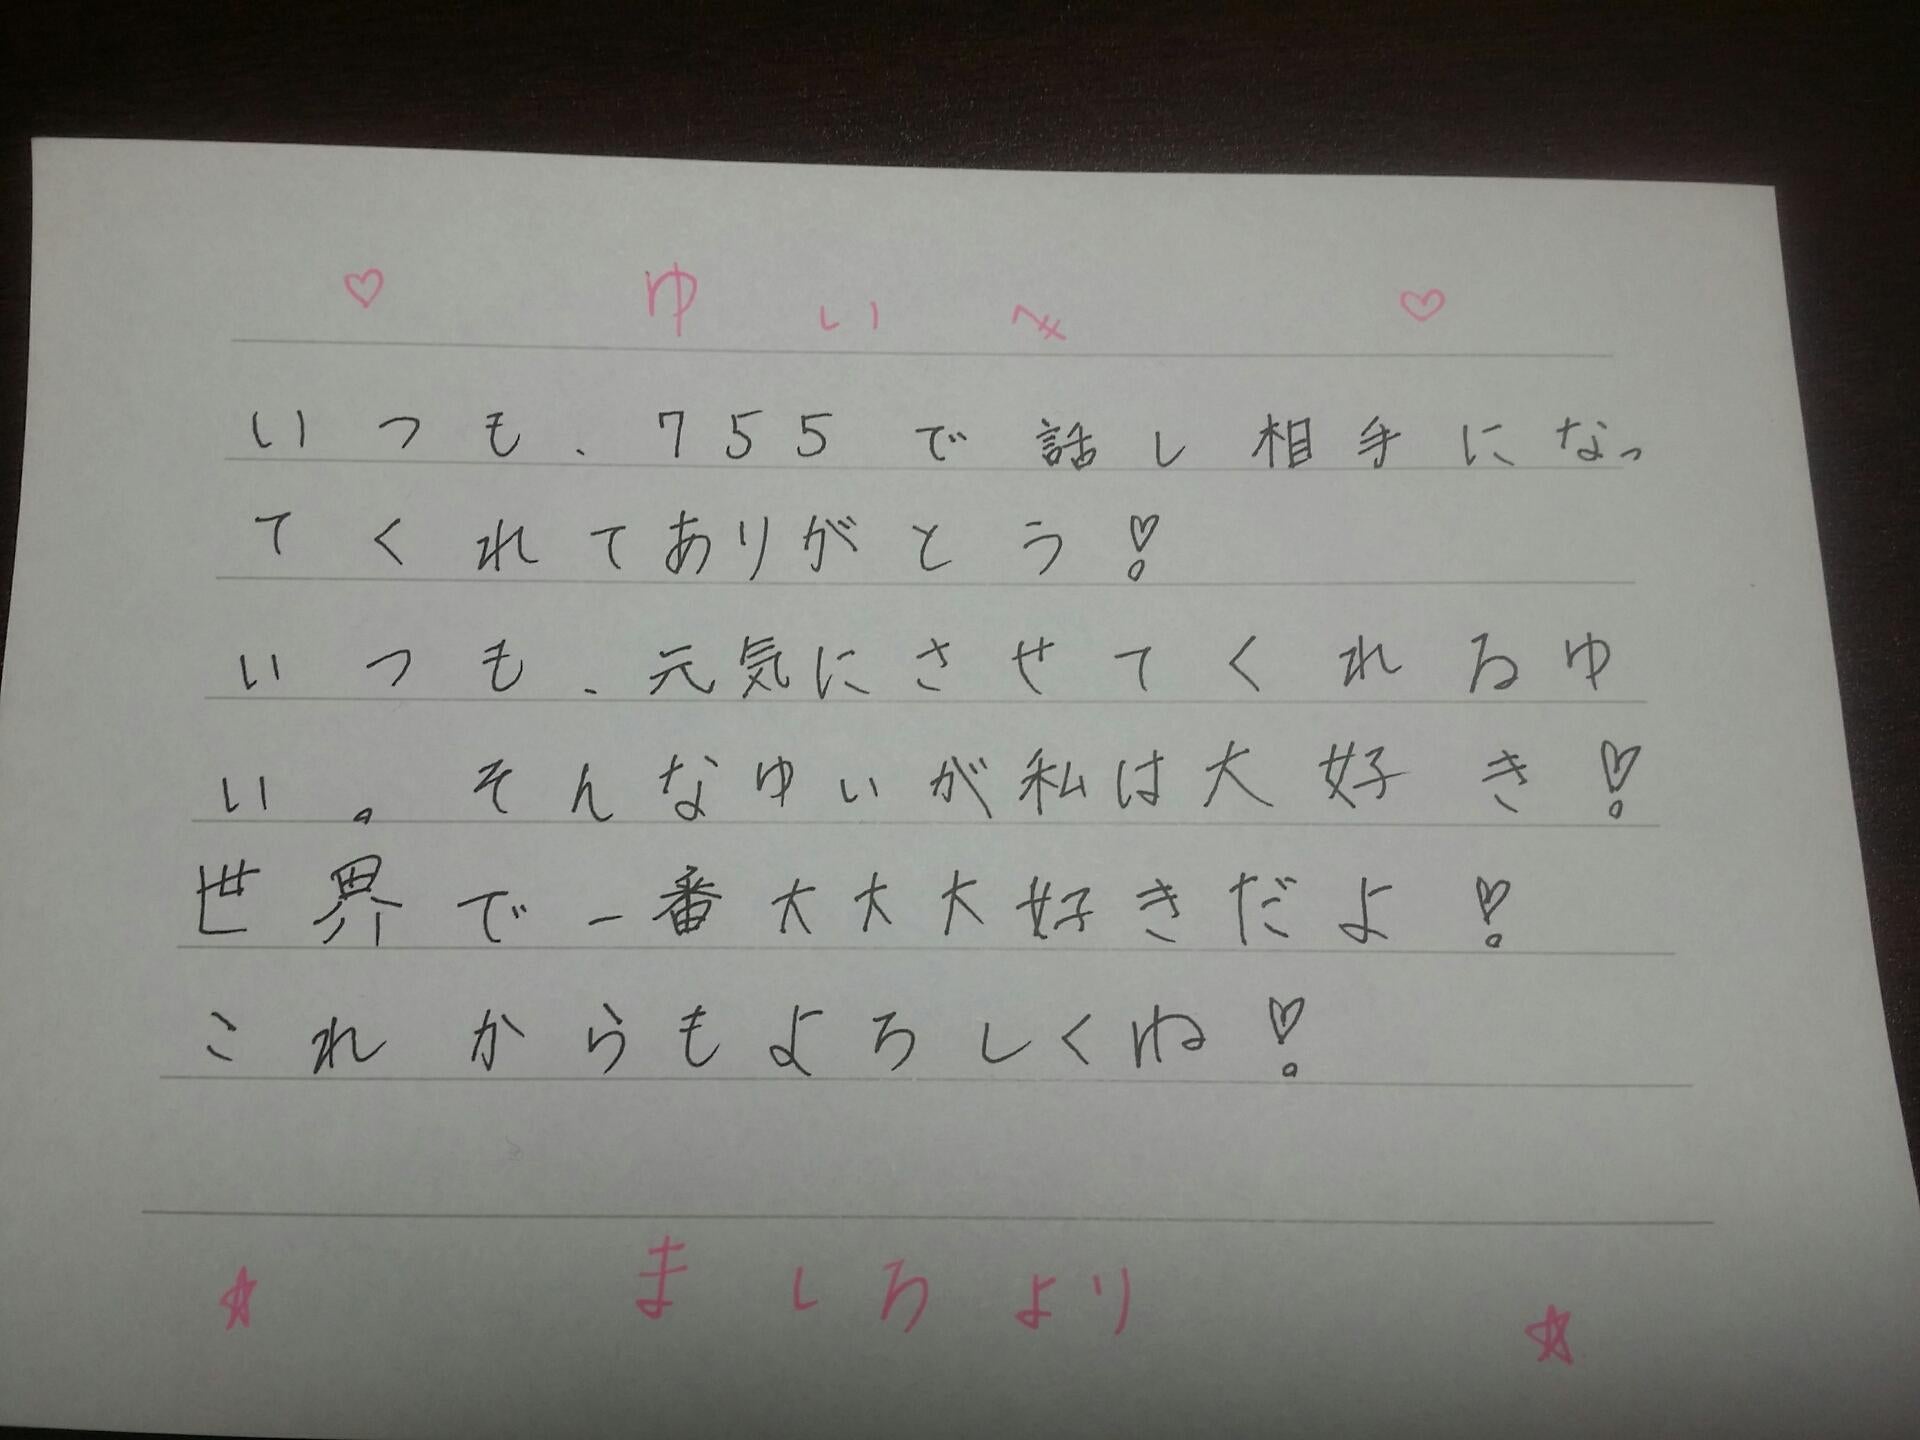 ♡ ゆいへ ♡
いつも、755で話し相手になっ
てくれてありがとう♡
いつも、元気にさせてくれるゆ
い。そんなゆいが私は大好き♡
世界で一番大大大好きだよ♡
これからもよろしくね♡
☆ ましろより ☆